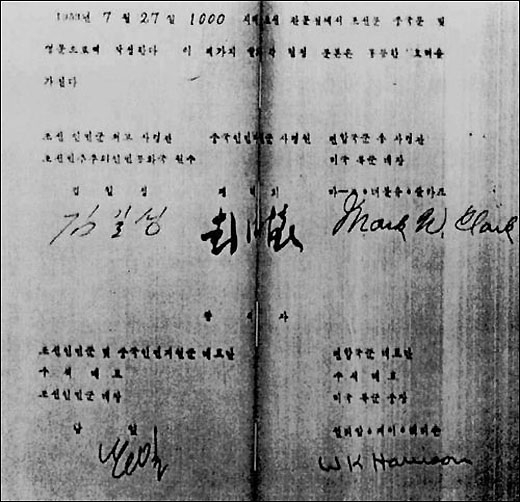 1953년 7월 27일 1000 시에 조선 판문점에서 조선문 중국문 및
영문으로써 작성한다 이 세가지 말의 각 협정 문본은 동등한 효력을
가진다
조선 인민군 최고 사령관 중국인민지원군 사령원 련합국군 총 사령관
조선민주주의인민공화국 원수 미국 륙군 대장
김 일 성 팽 덕 회 마-크 클라크
김일성 彭德 Mark W. Clark
참 석 자
조선인민군 및 중국인민지원군 대표단 련합국군 대표단
수석 대표 수석 대표
조선인민군 대장 미국 륙군 중장
남 일
남일 WK Harrison